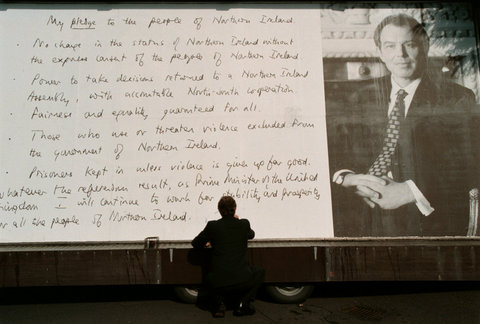 My pledge to the people of Northern Ireland.
· No change in the status of Northern Ireland without
the express consent of the people of Northern Ireland.
· Power to take decisions returned to a Northern Ireland
Assembly, with accountable North-South co-operation.
· Fairness and equality guaranteed for all.
· Those who use or threaten violence excluded from
the government of Northern Ireland.
· Prisoners kept in unless violence is given up for good.
Whatever the referendum result, as Prime Minister of the United
Kingdom I will continue to work for stability and prosperity
for all the people of Northern Ireland.